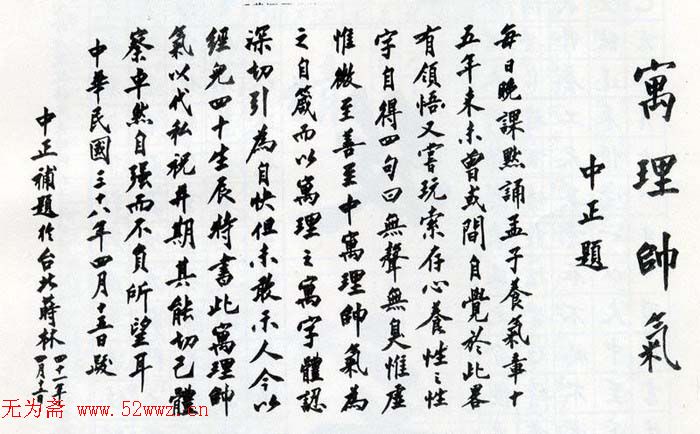 寓理帥氣
中正題
每日晚課默誦孟子養氣章十
五年來未曾或間自覺於此畧
有領悟又嘗玩索存心養性之性
字自得四句曰無聲無臭惟虛
惟微至善至中寓理帥氣為
之自箴而以寓理之寓字體認
深切引為自快但未敢示人今以
經兒四十生辰特書此寓理帥
氣以代私祝并期其能切己體
察卓然自強而不負所望耳
中華民國三十八年四月十五日跋
中正補題於台北蔣林
四十一年
四月
无为斋 www.52wwz.cn